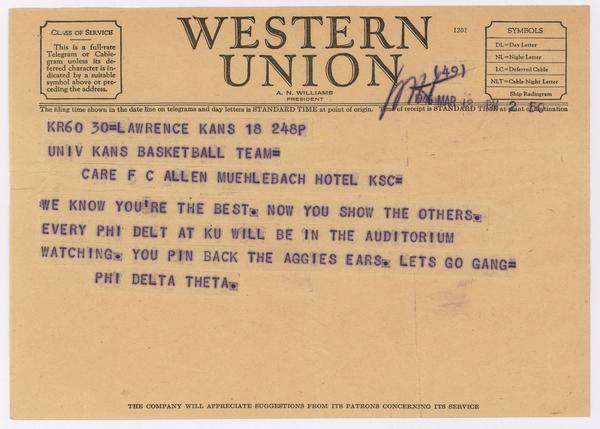 CLASS OF SERVICE
This is a full-rate
Telegram or Cable-
gram unless its de-
ferred character is in-
dicated by a suitable
symbol above or pre-
ceding the address.
WESTERN
UNION
A. N. WILLIAMS
PRESIDENT
1201
(49)
SYMBOLS
DL=Day Letter
NL=Night Letter
LC=Deferred Cable
NLT=Cable Night Letter
Ship Radiogram
The filing time shown in the date line on telegrams and day letters is STANDARD TIME at point of origin. Time of receipt is STANDARD TIME at point of destination
1946 MAR 18 PM 2 50
KR60 30=LAWRENCE KANS 18 248P
UNIV KANS BASKETBALL TEAM=
CARE F C ALLEN MUEHLEBACH HOTEL KSC=
WE KNOW YOU'RE THE BEST. NOW YOU SHOW THE OTHERS.
EVERY PHI DELT AT KU WILL BE IN THE AUDITORIUM
WATCHING. YOU PIN BACK THE AGGIES EARS. LETS GO GANG=
PHI DELTA THETA.
THE COMPANY WILL APPRECIATE SUGGESTIONS FROM ITS PATRONS CONCERNING ITS SERVICE